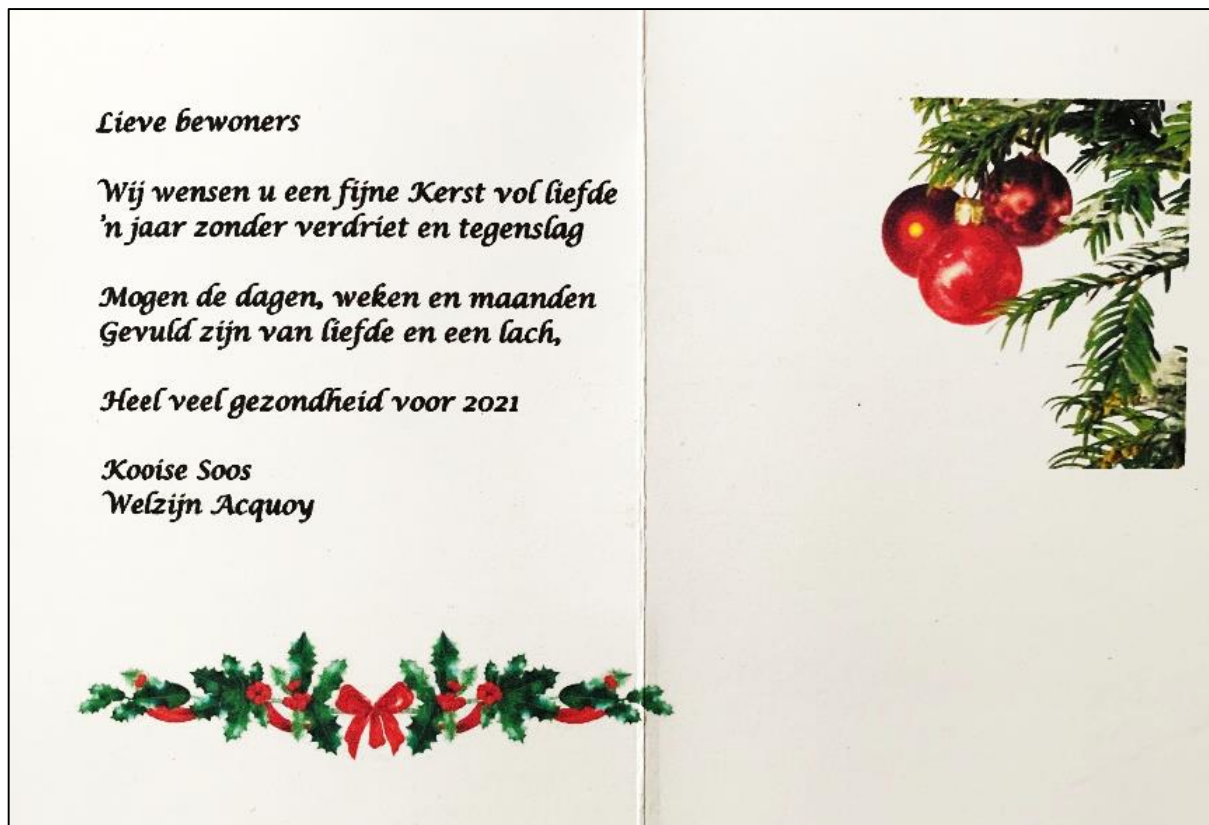 Lieve bewoners
Wij wensen u een fijne Kerst vol liefde
'n jaar zonder verdriet en tegenslag
Mogen de dagen, weken en maanden
Gevuld zijn van liefde en een lach,
Heel veel gezondheid voor 2021
Kooise Soos
Welzijn Acquoy